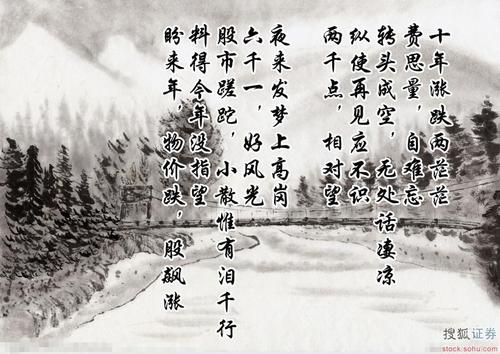 十年涨跌两茫茫
费思量，自难忘
转头成空，无处话凄凉
纵使再见应不识
两千点，相对望
夜来发梦上高岗
六千一，好风光
股市蹉跎，小散惟有泪千行
料得今年没指望
盼来年，物价跌，股飙涨
搜狐证券
stock.sohu.com